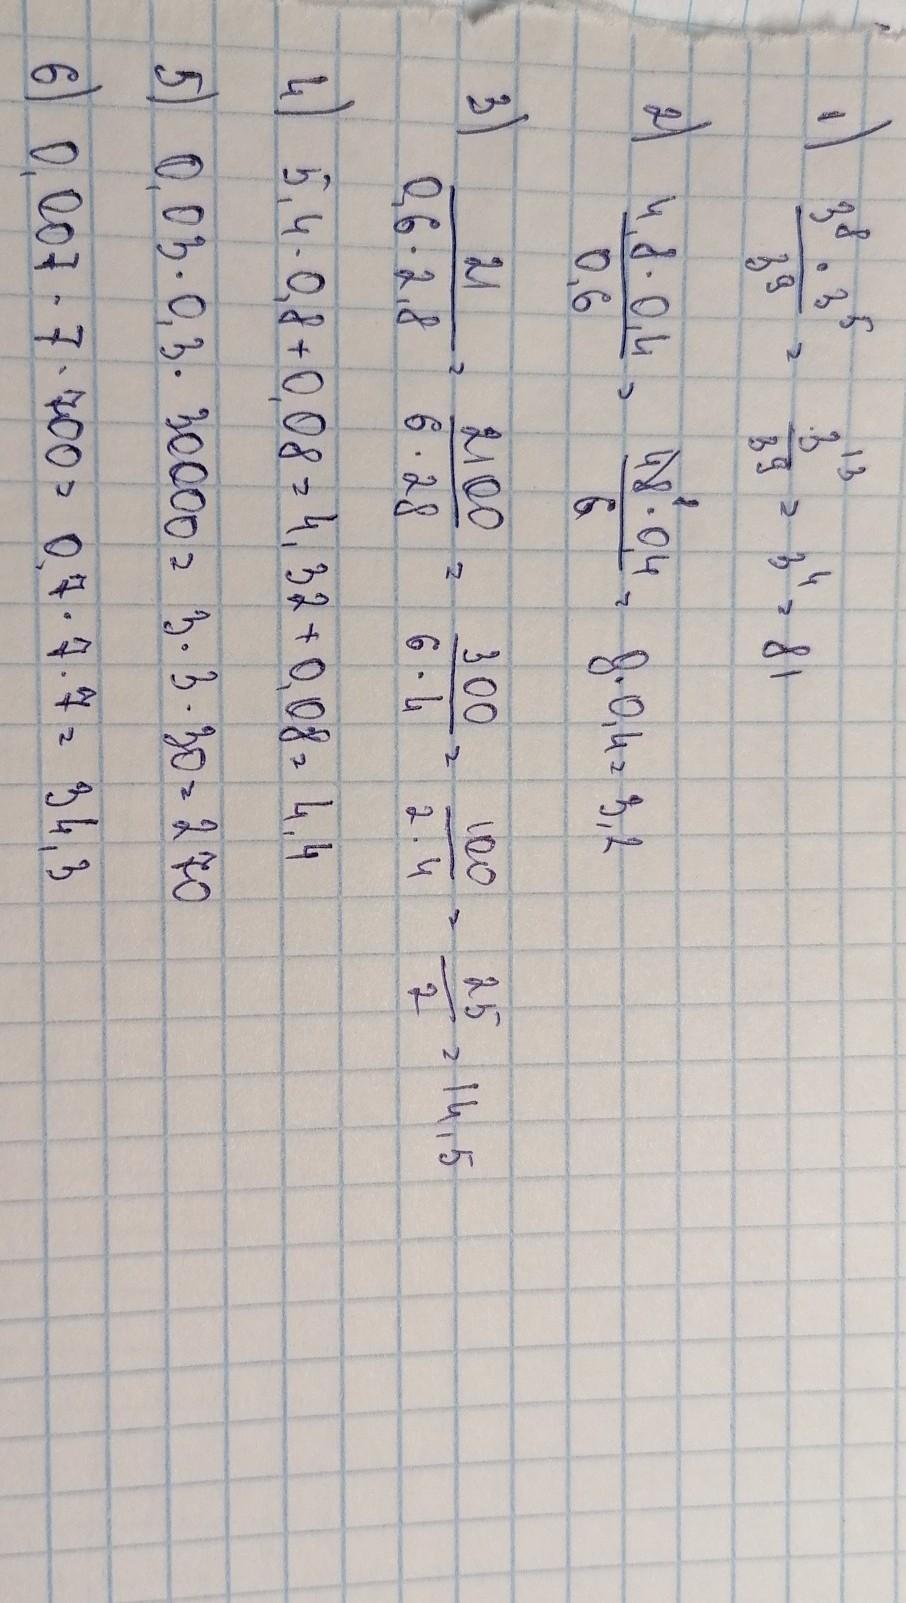 1) 3⁸·3⁵/3⁹ = 3¹³/3⁹ = 3⁴ = 81
2) 4,8·0,4/0,6 = 48⁸·0,4/6 = 8·0,4 = 3,2
3) 21/0,6·2,8 = 2100/6·28 = 300/6·4 = 100/2·4 = 25/2 = 14,5
4) 5,4·0,8+0,08 = 4,32+0,08 = 4,4
5) 0,03·0,3·30000 = 3·3·30 = 270
6) 0,007·7·700 = 0,7·7·7 = 34,3